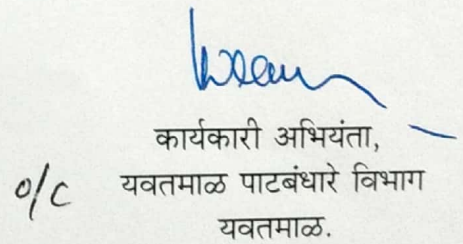 कार्यकारी अभियंता,
o/c यवतमाळ पाटबंधारे विभाग
यवतमाळ.